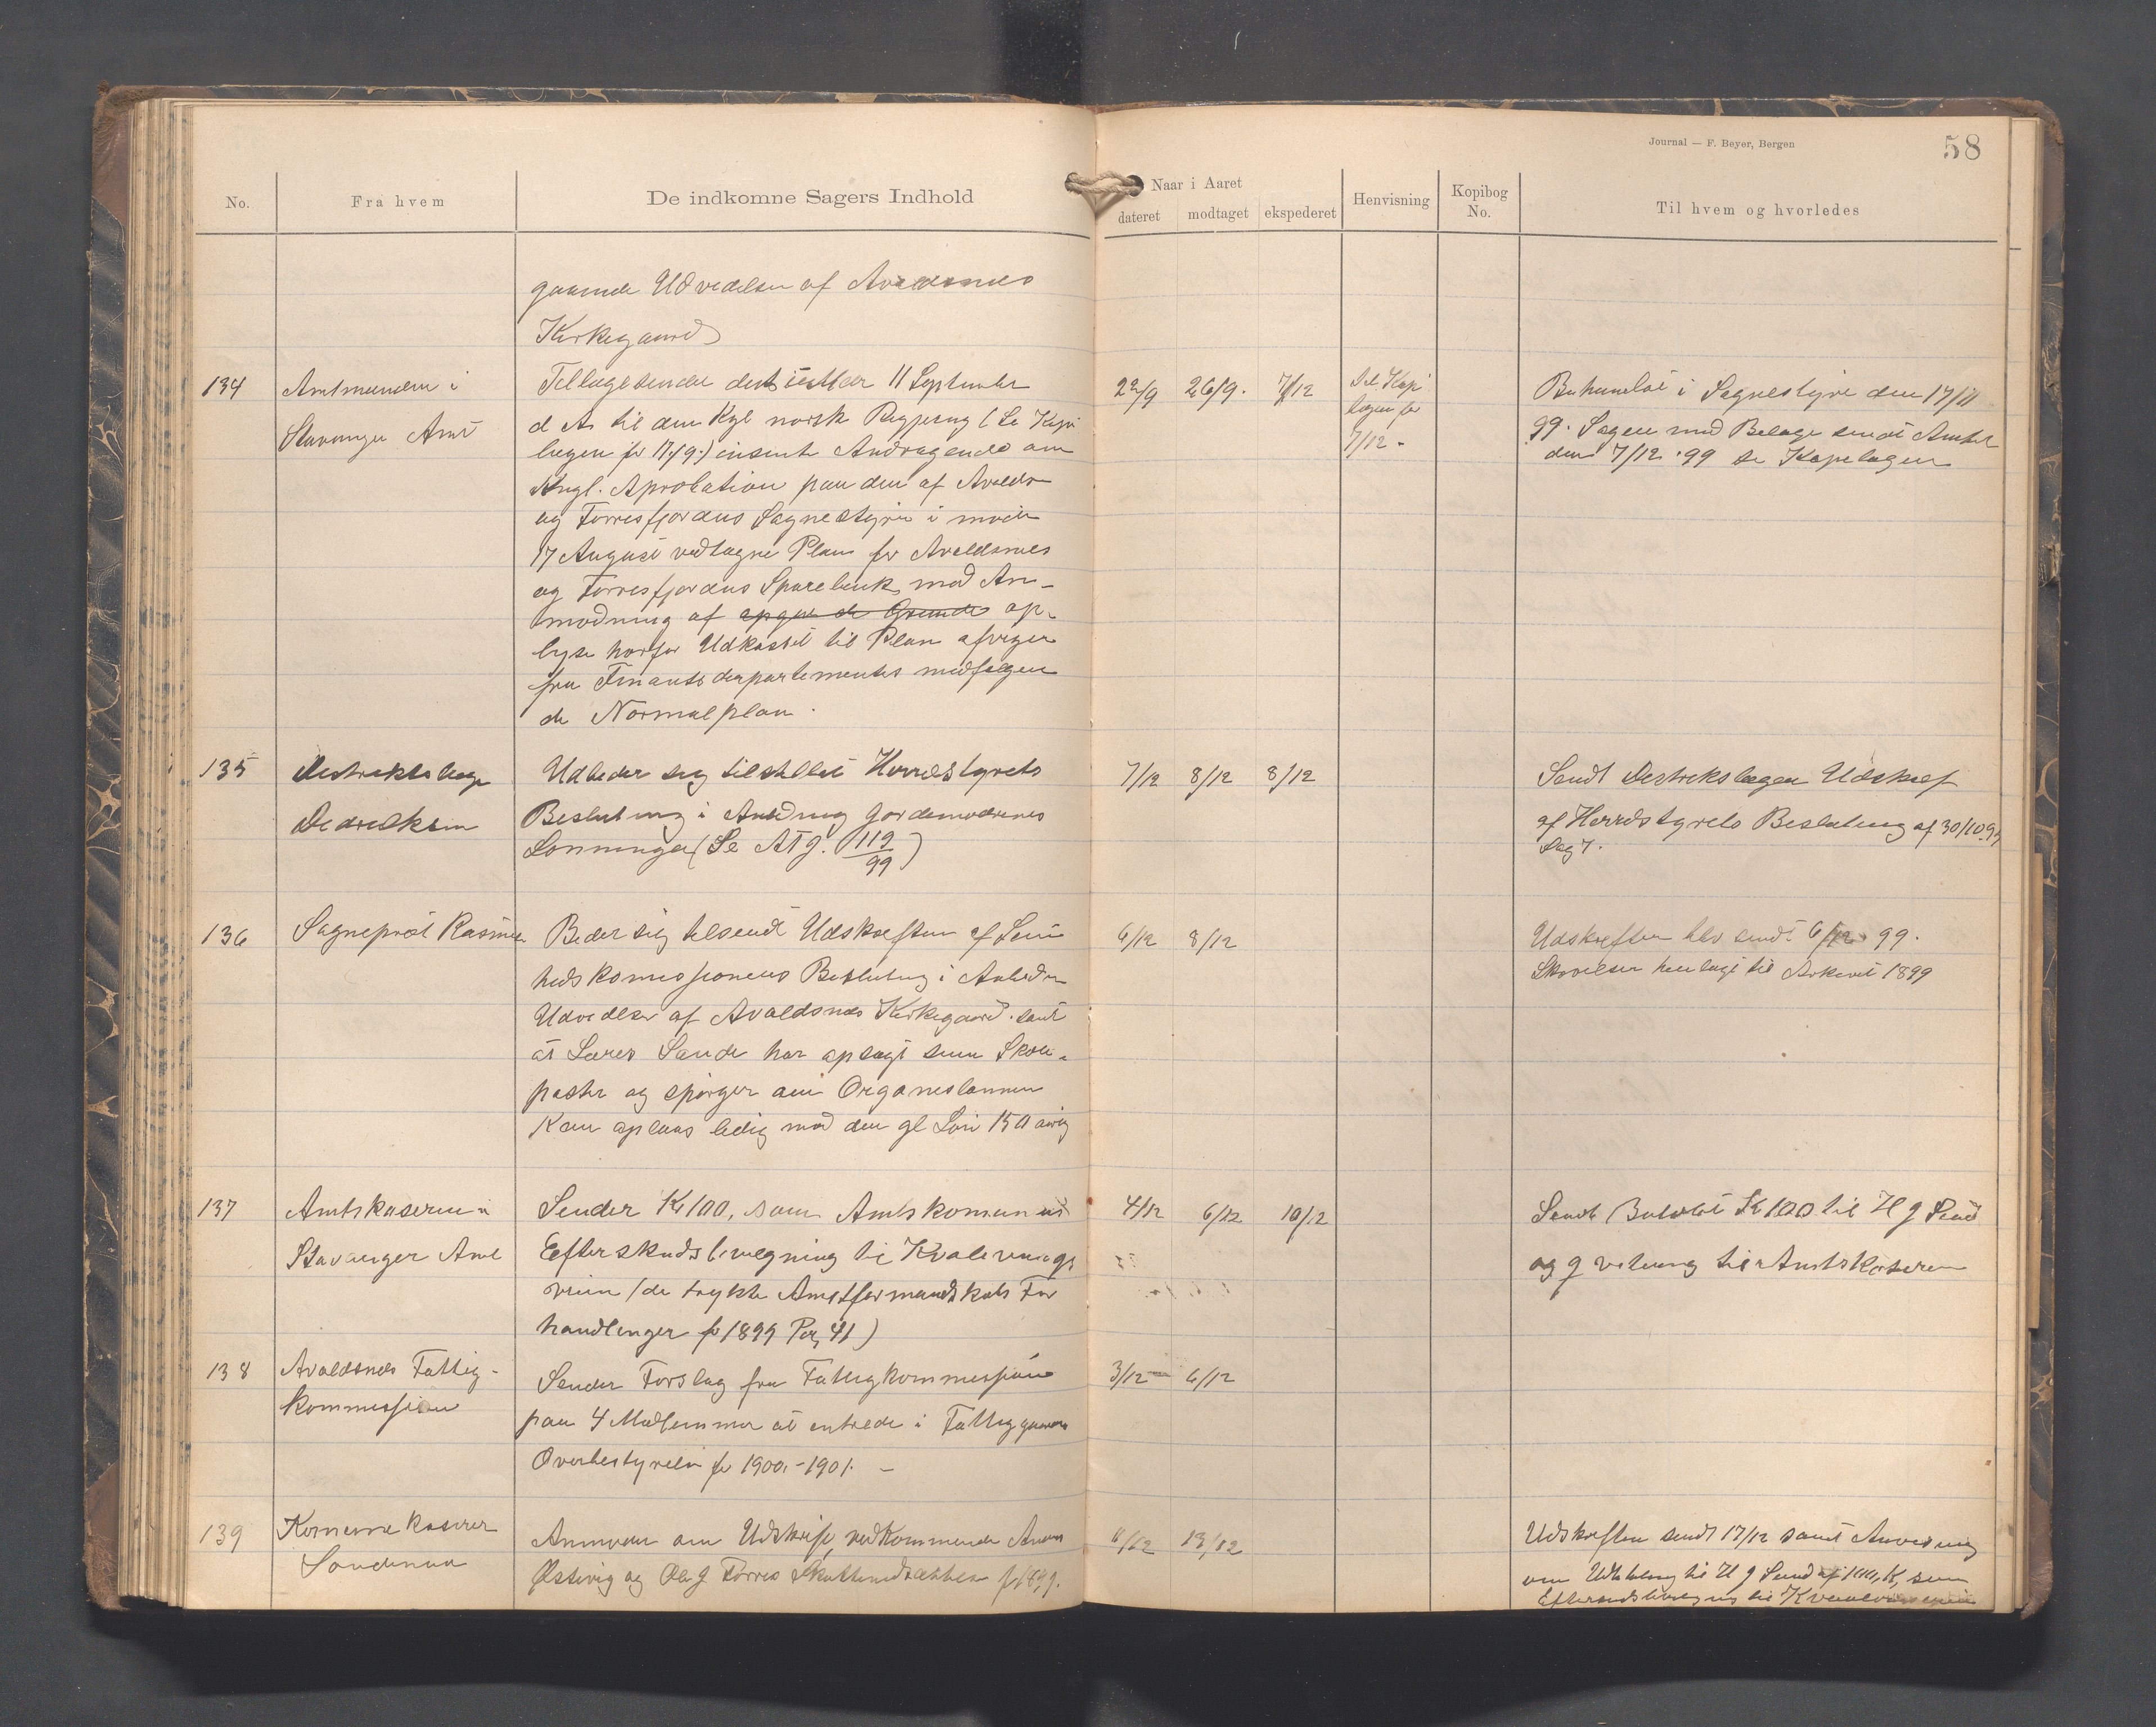 Journal — F. Beyer, Bergen
58
No.
Fra hvem
De indkomne Sagers Indhold
Naar i Aaret
dateret
modtaget
ekspederet
Henvisning
Kopibog
No.
Til hvem og hvorledes
gaaende Udvidelse af Avaldsnes
Kirkegaard
134
Amtmanden i
Stavanger Amt
Tilbagesender det 11 September
d A til den Kgl norsk Regjering (Se Kopi
bogen for 17/9.) insendte Andragende om
Kngl. Aprobation paa den af Avalds
og Torresfjordens Sognestyre i møde
17 August vedtagne Plan for Avaldsnes
og Torresfjordens Sparebank med An-
modning af opgive de Grunde op-
lyse hvorfor Udkastet til Plan afviger
fra Finantsdepartementets medfølgen
de Normalplan.
22/9
26/9.
7/12
Se Kopi
bogen for
7/12 -
Behandlet i Sognestyre den 17/11
99. Sagen med Belage sendt Amtet
den 7/12 .99 se Kopebogen
135
Distriktslæge
Didriksen
Udbeder sig tilstillet Herredstyrets
Beslutning i Anledning Gordemødrenes
Lønninger (Se ATg. 119
99)
7/12
8/12
8/12
Sendt Distrikslægen Udskrift
af Herredstyrets Beslutning af 30/10 99
Sag 7.
136
Sogneprest Rasmus
Beder sig tilsendt Udskriften af Sund
hedskomissionens Beslutning i Anledn
Udvidelse af Avaldsnes Kirkegaard. samt
at Lærer Sande har opsagt sin Skole-
poster og spørger om Organistlønnen
Kan oplaas ledig med den gl Løn 150 aarig
6/12
8/12
Udskriften blev sendt 6/12 99.
Skrivelsen henlagt til Arkivet 1899
137
Amtskasereren i
Stavanger Amt
Sender Kr 100, som Amtskomunens
Efterskudsbevilgning til Kvalevaags
veien (de trykte Amtformandskabs For
handlinger for 1899 Pag 41)
4/12
6/12
10/12
Sendt Beløbet Kr 100 til H J Sund
og qvitering til Amtskasereren
138
Avaldsnes Fattig-
kommission
Sender Forslag fra Fattigkommission
paa 4 Medlemmer at intrede i Fattiggaardens
Overbestyrelse for 1900 - 1901. -
3/12 -
6/12
139
Komunekaserer
Anmoder om Udskrift, vedkommende
Østevig og Ole J Torres Skattenedsættelse for 1899.
11/12
13/12
Udskriften sendt 17/12 samt Anvisning
om Udbetaling til H J Sund af 100, K, som
Efterskudsbevilgning til